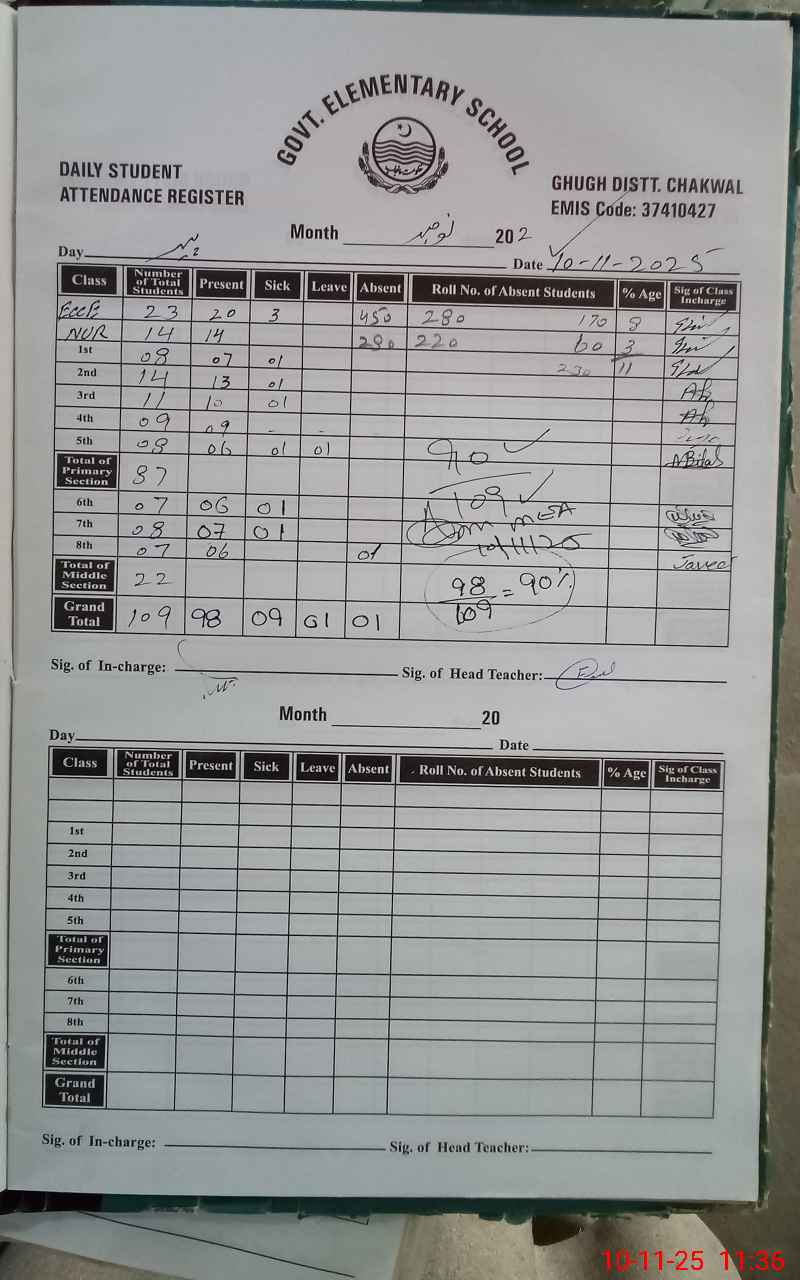 GOVT. ELEMENTARY SCHOOL
DAILY STUDENT
ATTENDANCE REGISTER
GHUGH DISTT. CHAKWAL
EMIS Code: 37410427
Month نومبر 202
Day پیر Date 10-11-2025
Class Number of Total Students Present Sick Leave Absent Roll No. of Absent Students % Age Sig of Class Incharge
ECCE 23 20 3 450 280 170 8
NUR 14 14 290 220 60 3
1st 08 07 01 230 11
2nd 14 13 01
3rd 11 10 01
4th 09 09 - -
5th 08 06 01 01 90 MBilal
Total of Primary Section 87
6th 07 06 01 109
7th 08 07 01 MEA
8th 07 06 01 10/11/25 Javed
Total of Middle Section 22
Grand Total 109 98 09 01 01 98/109 = 90%
Sig. of In-charge: Sig. of Head Teacher:
Month 20
Day Date
Class Number of Total Students Present Sick Leave Absent Roll No. of Absent Students % Age Sig of Class Incharge
1st
2nd
3rd
4th
5th
Total of Primary Section
6th
7th
8th
Total of Middle Section
Grand Total
Sig. of In-charge: Sig. of Head Teacher:
10-11-25 11:36